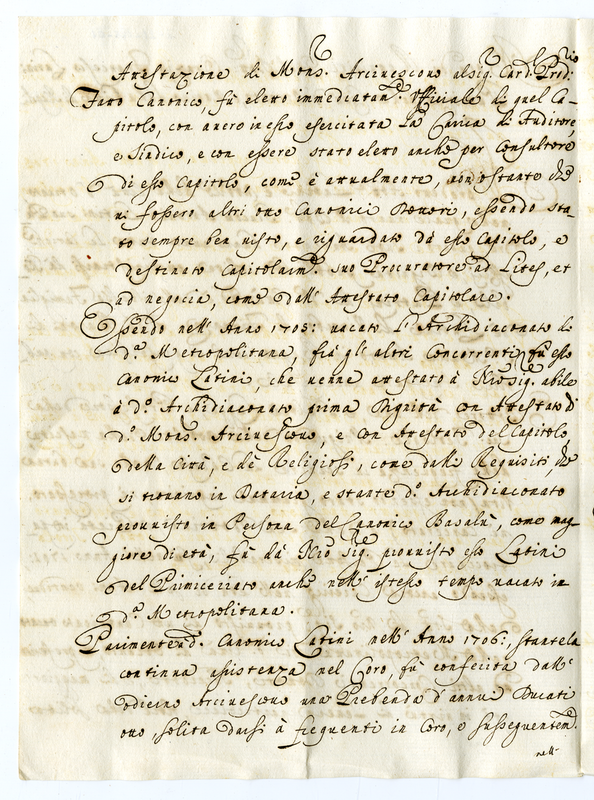 Attestazione di Mons.r Arcivescovo al sig.r Card.l Prod.rio
Fatto Canonico, fù eletto immediatam.te Officiale di quel Ca-
pitolo, con avero in esso esercitata la Carica di Auditore,
e Sindico, e con essere stato eletto anche per Consultore
di esso Capitolo, come è attualmente, non ostante che
vi fossero altri otto Canonici Dottori, essendo sta-
to sempre ben visto, e riguardato da esso Capitolo, e
destinato Capitolarm.te suo Procuratore ad Lites, et
ad negocia, come dall' Attestato Capitolare.
Essendo nell' Anno 1705: vacato l'Archidiaconato di
d.a Metropolitana, frà gl' altri Concorrenti fù esso
Canonico Latini, che venne attestato à N'ro sig.re abile
à d.o Archidiaconato prima Dignità con Attestato di
d.o Mons.r Arcivescovo, e con Attestato del Capitolo,
della Città, e dè Religiosi, come dalli Requisiti che
si trovano in Dataria, e stante d.o Archidiaconato
provvisto in Persona del Canonico Basalù, come mag-
giore di età, fù dà N'ro sig.re provvisto esso Latini
del Primiceriato anche nell' istesso tempo vacato in
d.a Metropolitana.
Parimente d.o Canonico Latini nell' Anno 1706:, stante la
continua assistenza nel Coro, fù conferita dall'
odierno Arcivescovo una Prebenda d'annui Ducati
otto, solita darsi à frequenti in Coro, e susseguentem.te
nell'